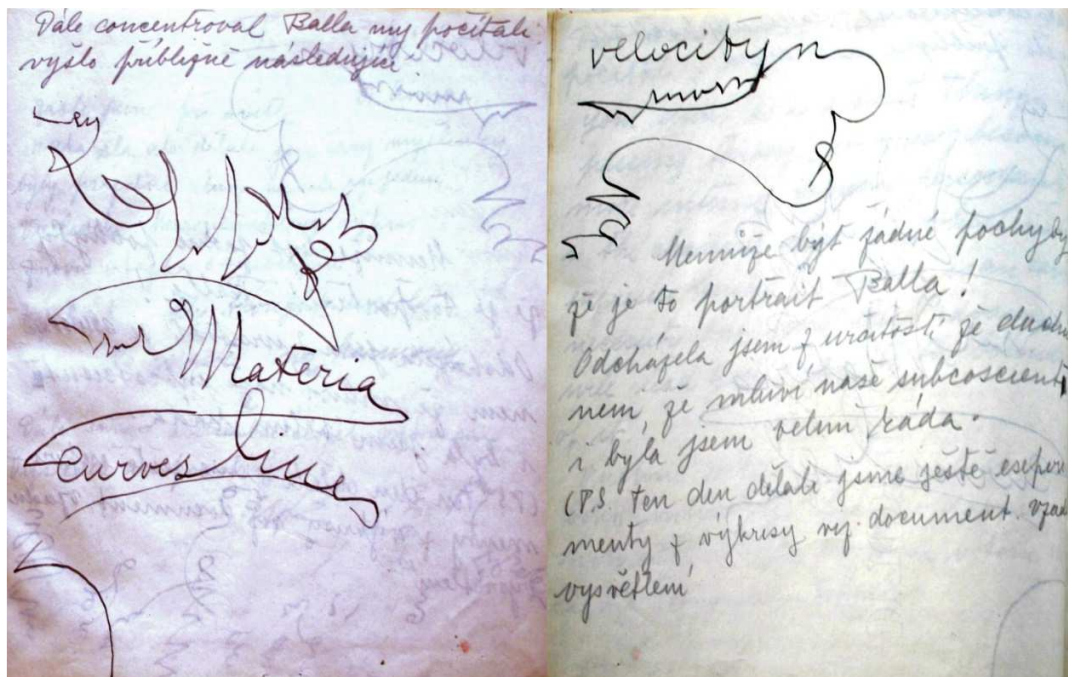 Dále concentroval Balla my počítali
vyšlo přibližně následující
Materia
curves lines
velocity n
Nemůže být žádné pochyby
že je to portrait Balla!
Odcházela jsem z určitostí že duchů
není, že mluví naše subcoscient
i byla jsem velmi ráda.
(P.S. ten den dělali jsme ještě esperi
menty z výkresy viz. document. vzadu
vysvětlení